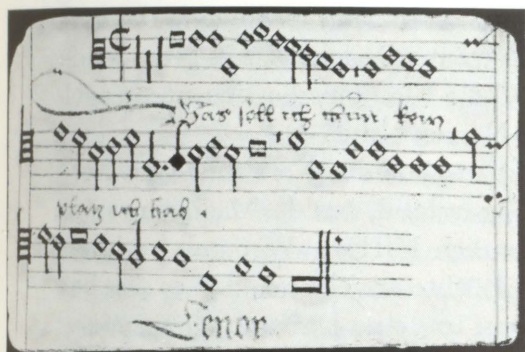 Was soll ich thun kein
platz ich hab.
Tenor